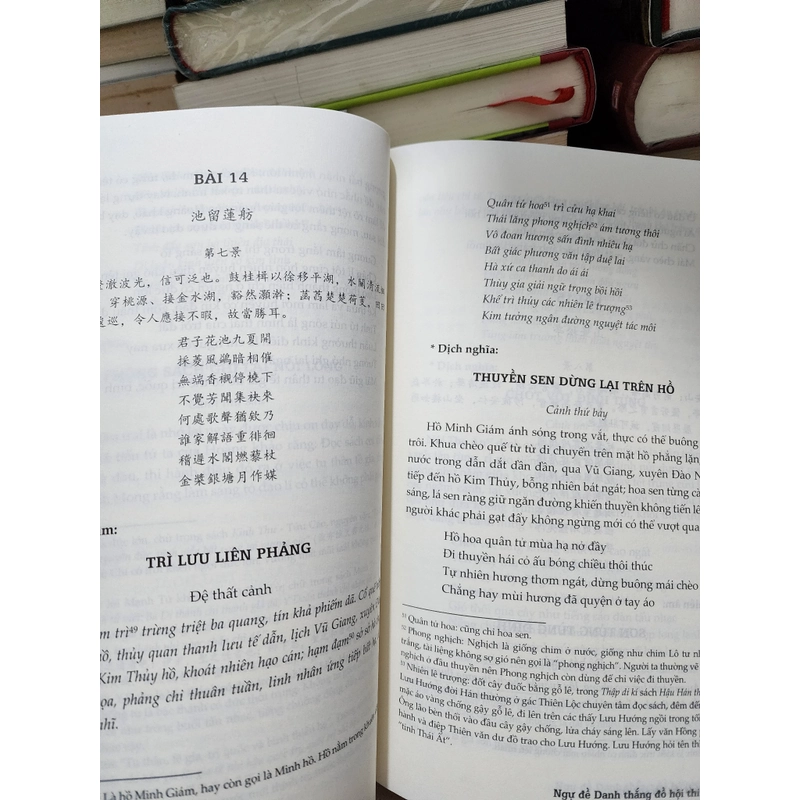 BÀI 14
池留蓮舫
第七景
澄澈波光，信可泛也。鼓桂楫以徐移平湖，水關清流
穿桃源、接金水湖，豁然灝澣；菡萏楚楚荷蕖，
逡巡，令人應接不暇，故當勝耳。
君子花池九夏開
採菱風鷁暗相催
無端香襯停橈下
不覺芳聞集袂來
何處歌聲猶欸乃
誰家解語重徘徊
稽遲水閣燃藜杖
金槳銀塘月作媒
âm:
TRÌ LƯU LIÊN PHẢNG
Đệ thất cảnh
trì⁴⁹ trừng triệt ba quang, tín khả phiếm dã. Cổ quế
hồ, thủy quan thanh lưu tế dẫn, lịch Vũ Giang, xuyên
Kim Thủy hồ, khoát nhiên hạo cán; hạm đạm⁵⁰ sở sở
tọa, phảng chi thuân tuần, linh nhân ứng tiếp bất
nhĩ.
Là hồ Minh Giám, hay còn gọi là Minh hồ. Hồ nằm trong
Quân tử hoa⁵¹ trì cửu hạ khai
Thái lăng phong nghịch⁵² ám tương thôi
Vô đoan hương sấn đình nhiêu hạ
Bất giác phương văn tập duệ lai
Hà xứ ca thanh do ái ái
Thùy gia giải ngữ trọng bồi hồi
Khế trì thủy các nhiên lê trượng⁵³
Kim tưởng ngân đường nguyệt tác môi
* Dịch nghĩa:
THUYỀN SEN DỪNG LẠI TRÊN HỒ
Cảnh thứ bảy
Hồ Minh Giám ánh sóng trong vắt, thực có thể buông
trôi. Khua chèo quế từ từ di chuyển trên mặt hồ phẳng lặng,
nước trong dẫn dắt dần dần, qua Vũ Giang, xuyên Đào
tiếp đến hồ Kim Thủy, bỗng nhiên bát ngát; hoa sen từng
sáng, lá sen ràng giữ ngăn đường khiến thuyền không tiến
người khác phải gạt đẩy không ngừng mới có thể vượt qua
Hồ hoa quân tử mùa hạ nở đầy
Đi thuyền hái củ ấu bóng chiều thôi thúc
Tự nhiên hương thơm ngát, dừng buông mái chèo
Chẳng hay mùi hương đã quyện ở tay áo
⁵¹ Quân tử hoa: cũng chỉ hoa sen.
⁵² Phong nghịch: Nghịch là giống chim ở nước, giống như chim Lô tư
trắng, tài liệng không sợ gió nên gọi là "phong nghịch". Người ta thường vẽ
nghịch ở đầu thuyền nên Phong nghịch còn dùng để chỉ việc đi thuyền.
⁵³ Nhiên lê trượng: đốt cây đuốc bằng gỗ lê, trong Thập di kí sách Hậu Hán
Lưu Hướng đời Hán thường ở gác Thiên Lộc chuyên tâm đọc sách, đêm đến
mặc áo vàng chống gậy gỗ lê, đi lên trên các thấy Lưu Hướng ngồi trong tối
Ông lão bèn thổi vào đầu cây gậy chống, lửa cháy sáng lên. Lấy văn Hồng
hành và điệp Thiên văn dư đồ trao cho Lưu Hướng. Lưu Hướng hỏi tên
"tinh Thái Ất".
Ngự đề Danh thắng đồ hội thi